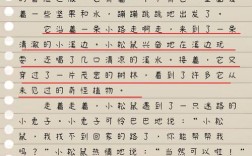 着一些坚果和水，蹦蹦跳跳地出发了。
它沿着一条小路走啊走，来到了一条
清澈的小溪边，小松鼠兴奋地在溪边玩
耍，还喝了几口清凉的溪水。接着，它又
穿过了一片茂密的树林，看到了许多它从
来见过的奇怪植物。
走着走着，小松鼠遇到了一只迷路的
小兔子。小兔子可怜巴巴地说：“小松
鼠，我找不到回家的路了，你能帮帮我
吗？”小松鼠热情地说：“当然可以啦！